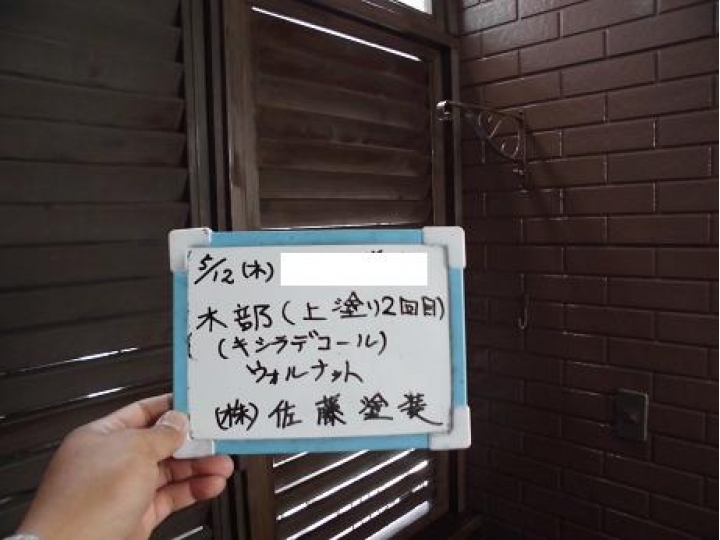 5/12(木)
木部(上塗り2回目)
(キシラデコール)
ウォルナット
(株)佐藤塗装